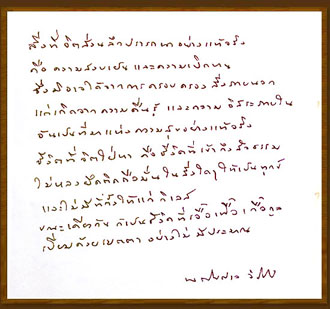 สิ่งที่จิตส่วนลึกปรารถนาอย่างแท้จริง
คือ ความสงบเย็น และความเบิกบาน
ซึ่งมิอาจได้จากการครอบครองสิ่งภายนอก
แต่เกิดจากความตื่นรู้ และความอิสระภายใน
อันเป็นที่มาแห่งความสุขอย่างแท้จริง
ชีวิตที่จิตใฝ่หา คือชีวิตที่เข้าถึงสัจธรรม
ไม่หลงยึดติดถือมั่นในสิ่งใดๆให้เป็นทุกข์
และไม่พ่ายแพ้แก่กิเลส
ขณะเดียวกันก็เป็นชีวิตที่เอื้อเฟื้อเกื้อกูล
เปี่ยมด้วยเมตตาอย่างไม่มีประมาณ